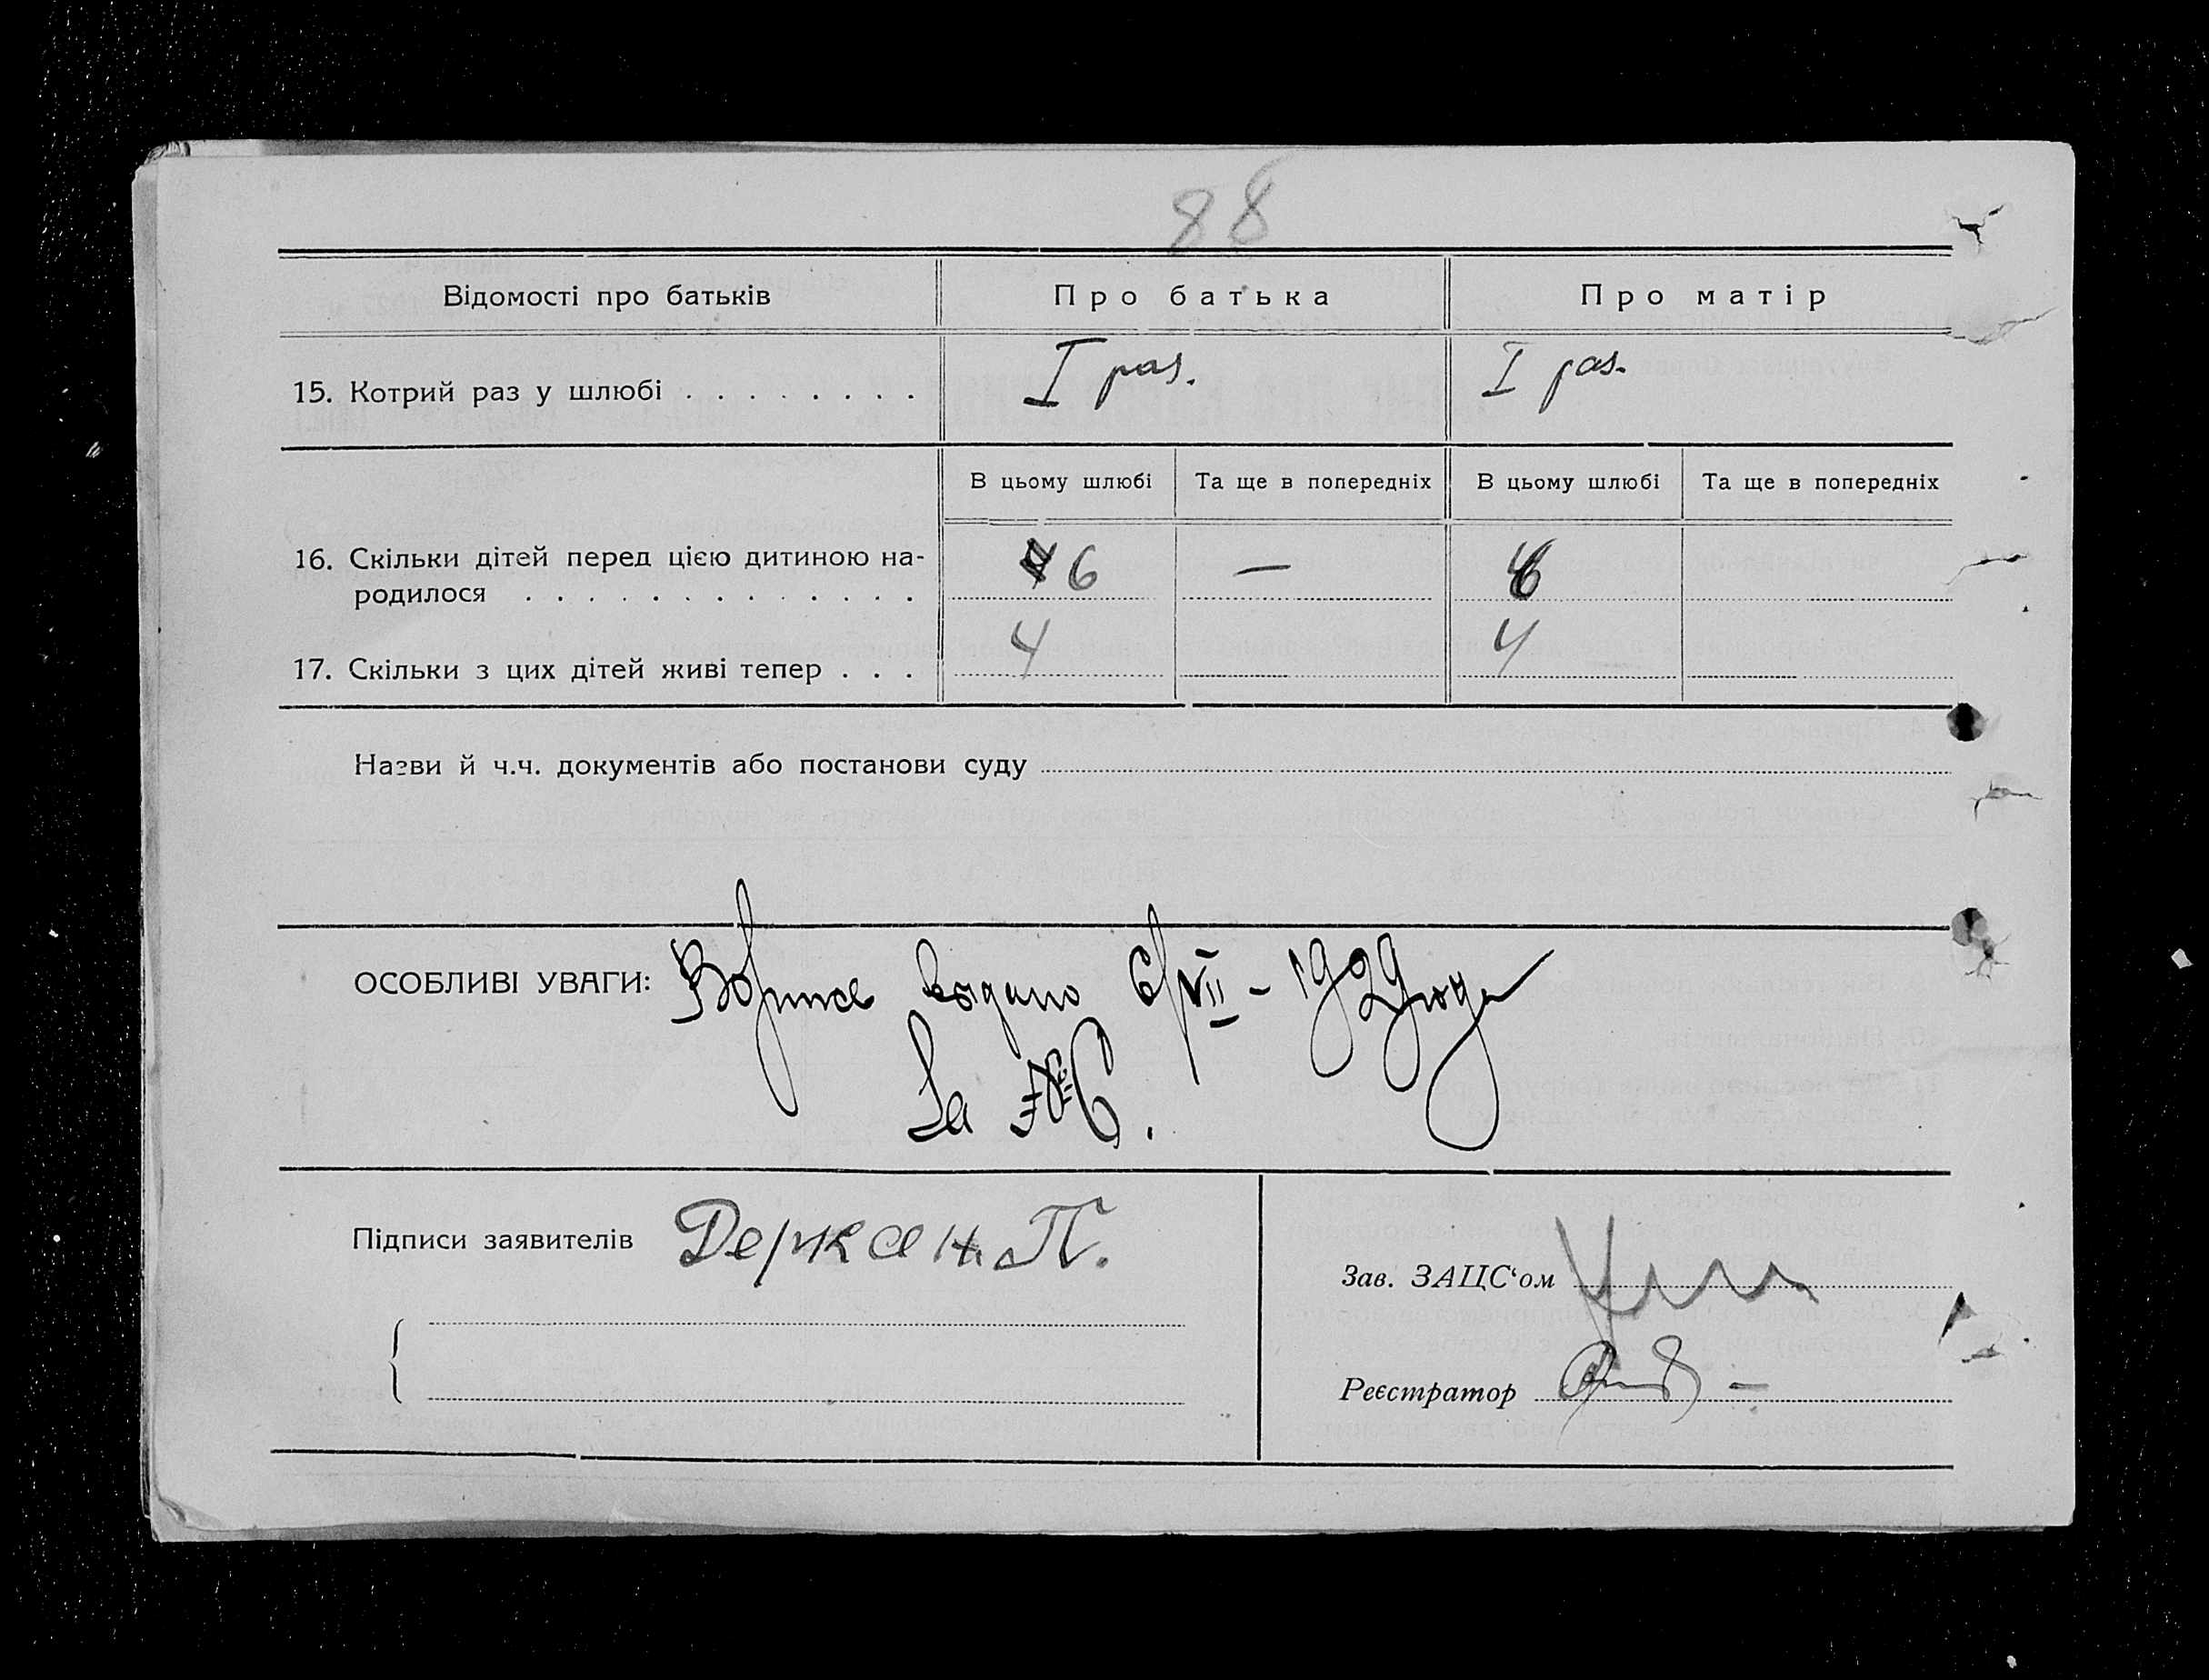 88
Відомості про батьків Про батька Про матір
15. Котрий раз у шлюбі . . . . . . . . I раз. I раз.
В цьому шлюбі Та ще в попередніх В цьому шлюбі Та ще в попередніх
16. Скільки дітей перед цією дитиною на-
родилося . . . . . . . . . . . . . 6 — 6
17. Скільки з цих дітей живі тепер . . . 4 4
Назви й ч.ч. документів або постанови суду
ОСОБЛИВІ УВАГИ: видано 6/VII - 1929 года
За № 6.
Підписи заявителів Деркач. П.
Зав. ЗАЦС‘ом
Реєстратор